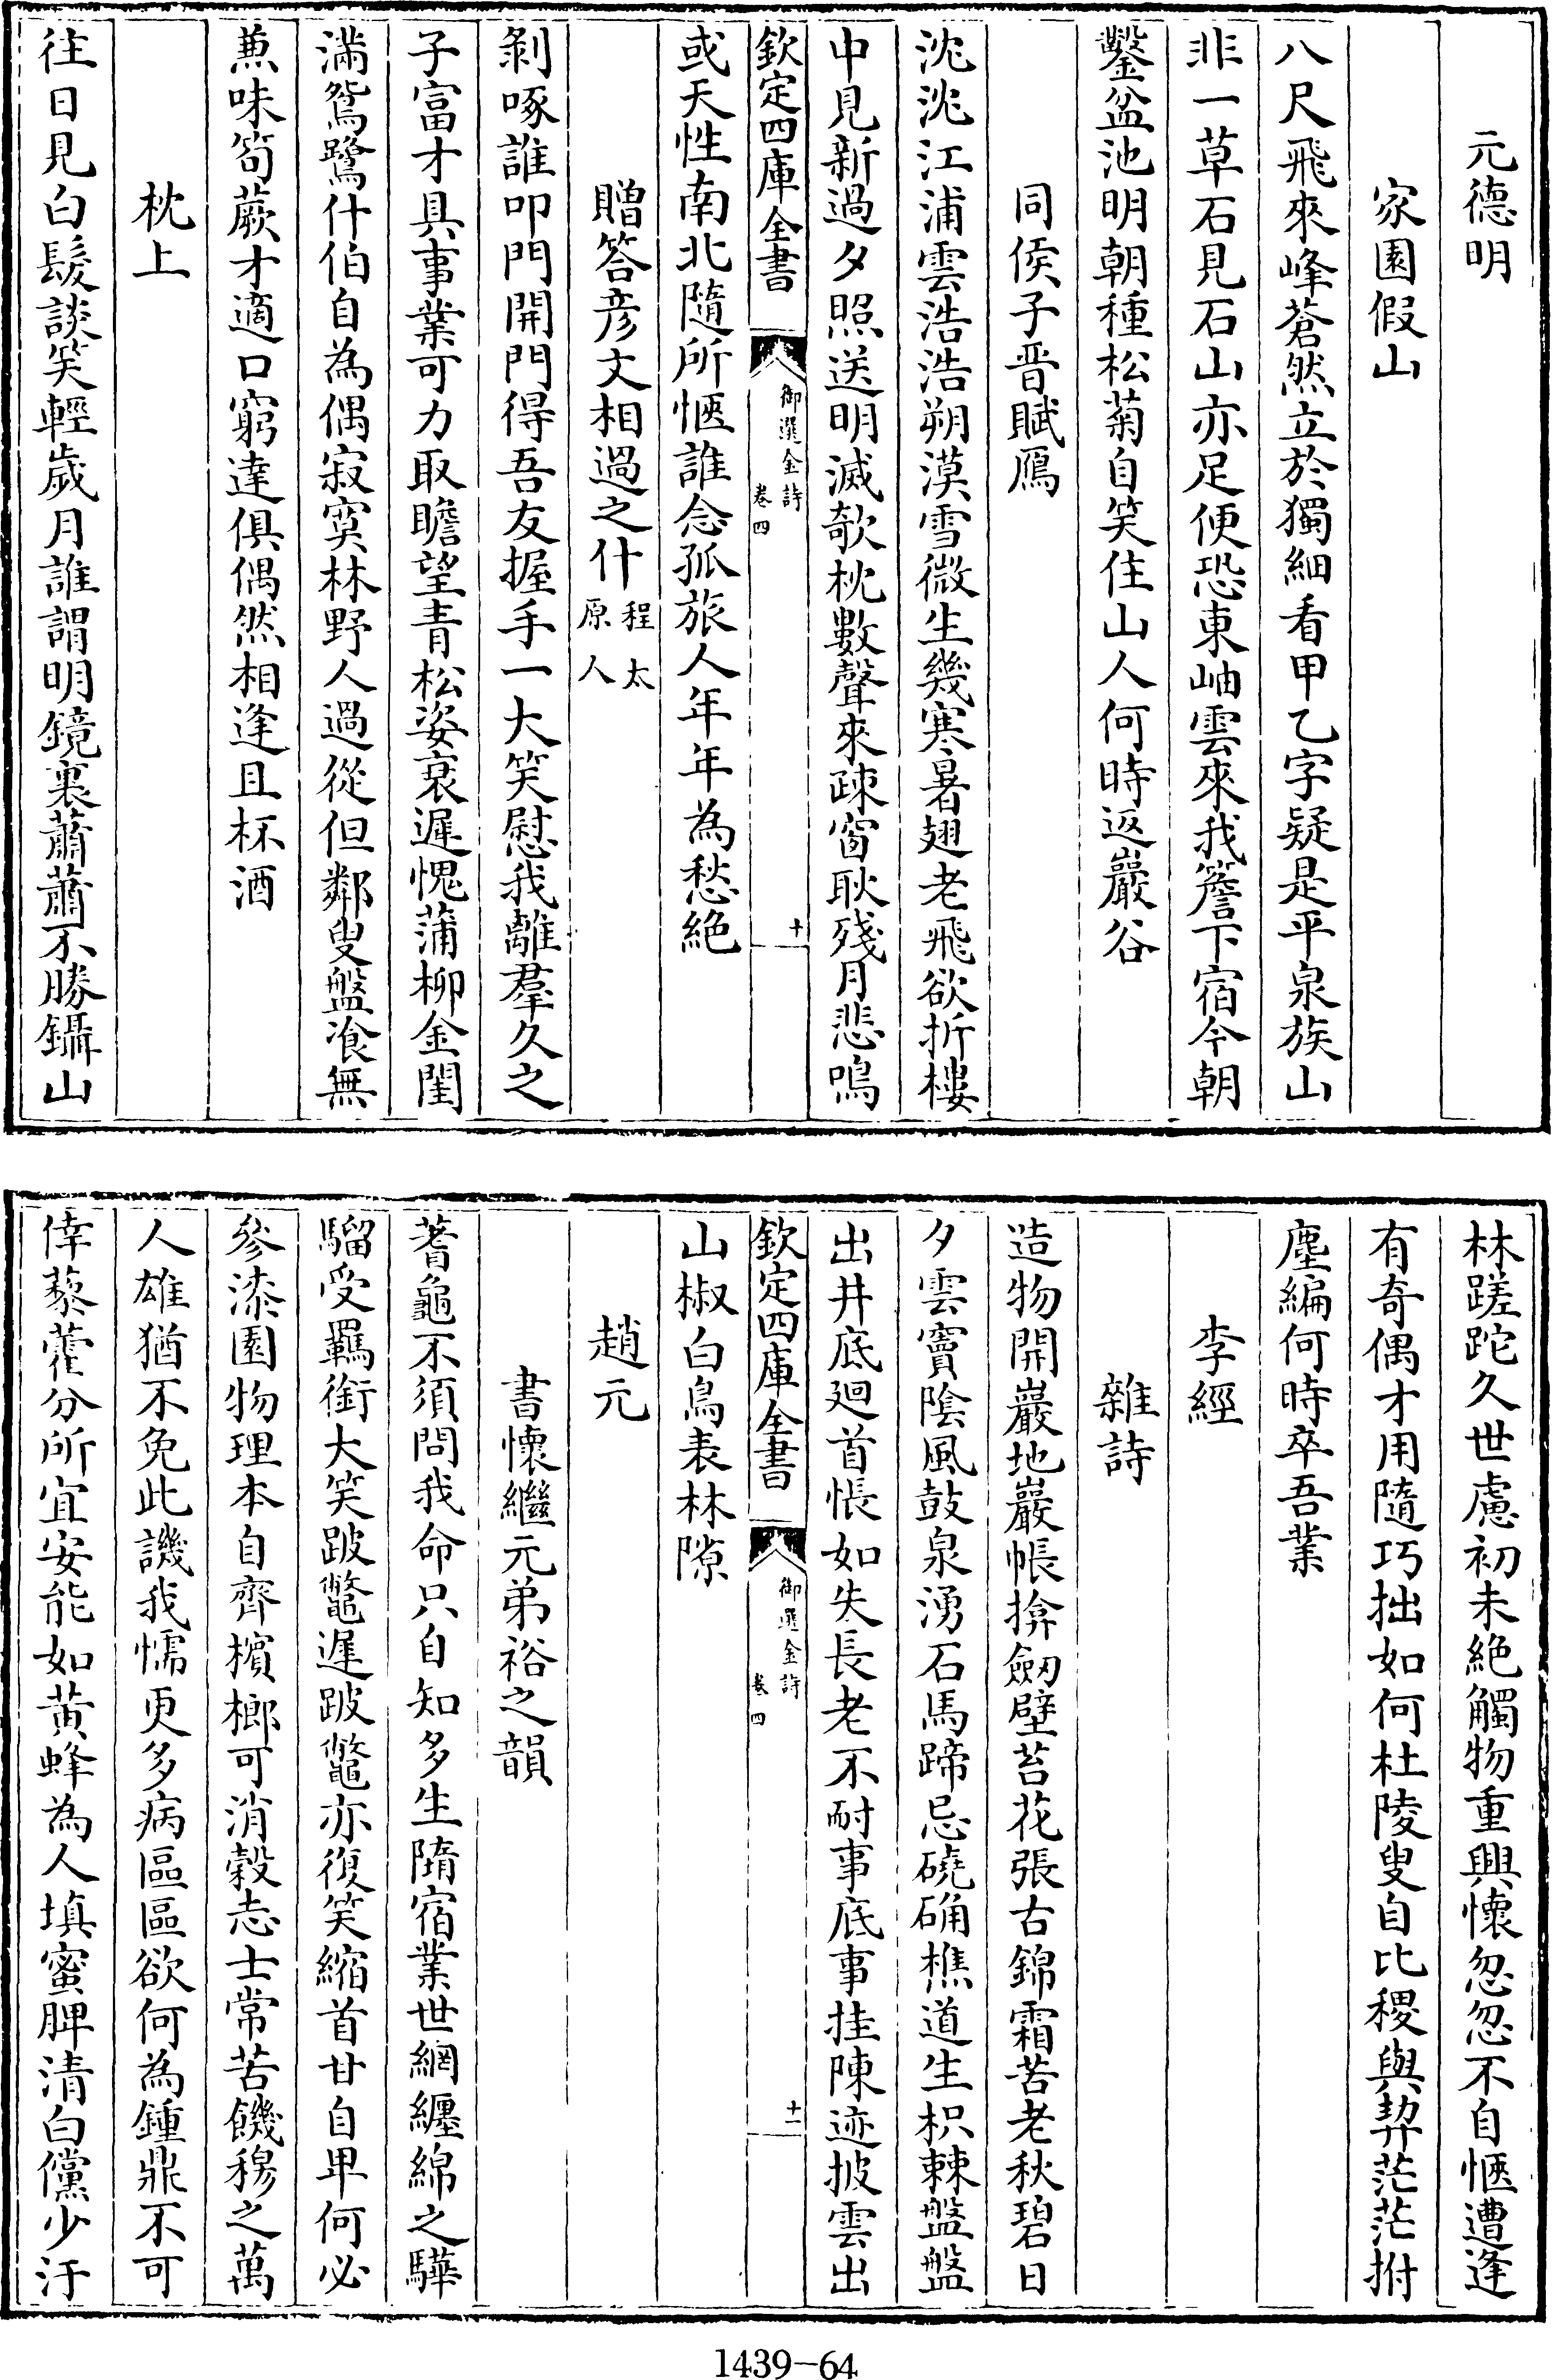 元德明
家園假山
八尺飛來峰蒼然立於獨細看甲乙字疑是平泉族山
非一草石見石山亦足便恐東岫雲來我簷下宿今朝
鑿盆池明朝種松菊自笑住山人何時返巖谷
同侯子晋賦鴈
沈沈江浦雲浩浩朔漠雪微生幾寒暑翅老飛欲折樓
中見新過夕照送明滅欹枕數聲來疎窗耿殘月悲鳴
欽定四庫全書
御選金詩
卷四
十
或天性南北隨所愜誰念孤旅人年年為愁絕
贈答彦文相過之什程太
原人
剝啄誰叩門開門得吾友握手一大笑慰我離羣久之
子富才具事業可力取瞻望青松姿衰遲愧蒲柳金閨
滿鴛鷺什伯自為偶寂寞林野人過從但鄰叟盤飡無
兼味筍蕨才適口窮達俱偶然相逢且杯酒
枕上
往日見白髮談笑輕歲月誰謂明鏡裏蕭蕭不勝鑷山
林蹉跎久世慮初未絕觸物重興懷忽忽不自愜遭逢
有奇偶才用隨巧拙如何杜陵叟自比稷與契茫茫拊
塵編何時卒吾業
李經
雜詩
造物開巖地巖帳揜劒壁苔花張古錦霜苦老秋碧日
夕雲竇陰風鼓泉湧石馬蹄忌磽确樵道生枳棘盤盤
出井底廻首悵如失長老不耐事底事挂陳迹披雲出
欽定四庫全書
御選金詩
卷四
十一
山椒白鳥表林隙
趙元
書懷繼元弟裕之韻
蓍龜不須問我命只自知多生隋宿業世網纏綿之驊
騮受羈銜大笑跛鼈遲跛鼈亦復笑縮首甘自卑何必
參漆園物理本自齊檳榔可消穀志士常苦饑穆之萬
人雄猶不免此譏我懦更多病區區欲何為鍾鼎不可
倖藜藿分所宜安能如黃蜂為人填蜜脾清白儻少汙
1439-64